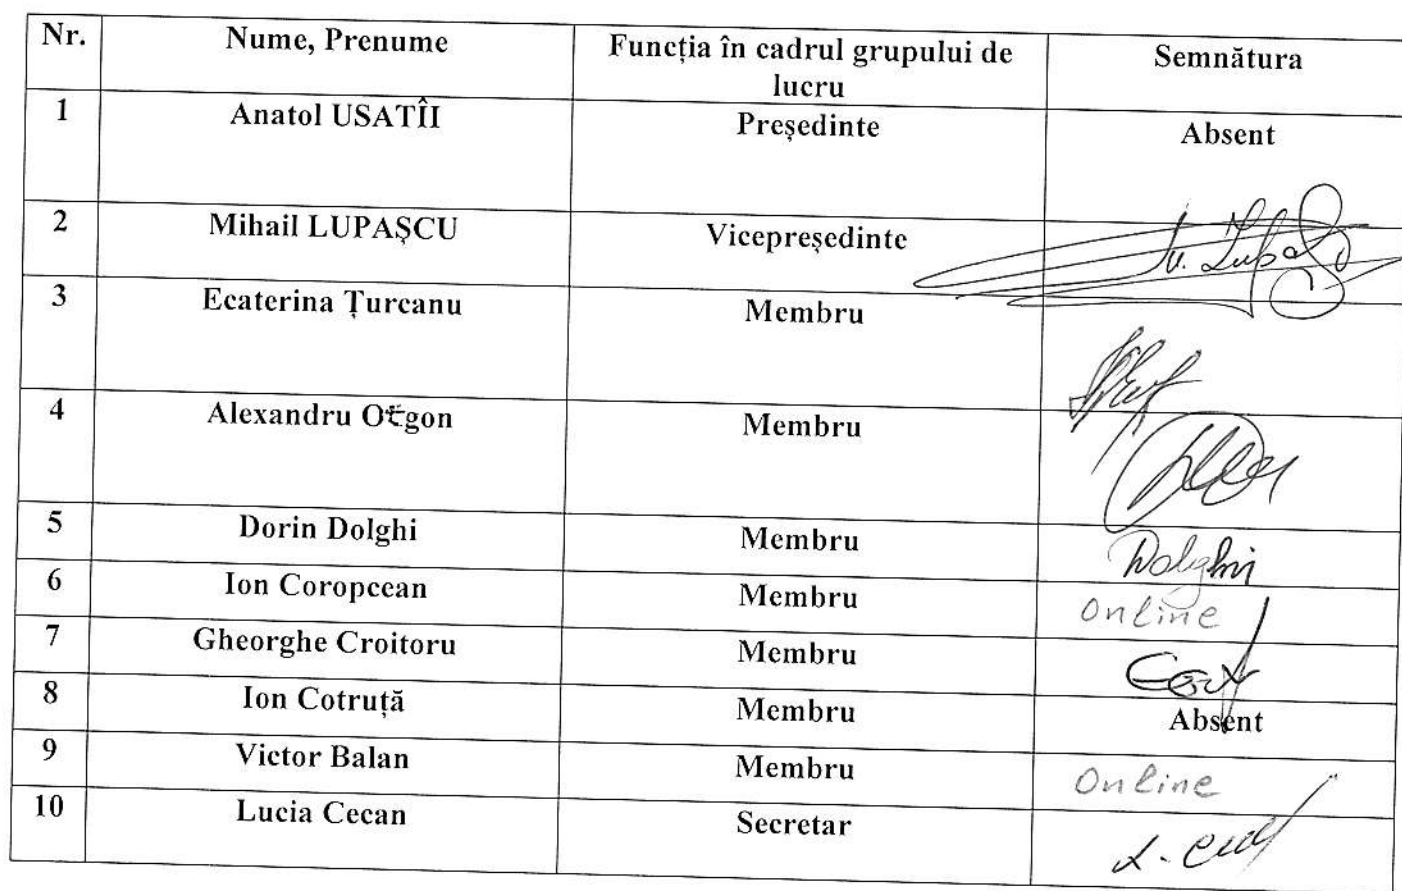 Nr. Nume, Prenume Funcția în cadrul grupului de Semnătura
lucru
1 Anatol USATÎI Președinte Absent
2 Mihail LUPAȘCU Vicepreședinte
3 Ecaterina Țurcanu Membru
4 Alexandru Membru
5 Dorin Dolghi Membru Dolghi
6 Ion Coropcean Membru Online
7 Gheorghe Croitoru Membru
8 Ion Cotruță Membru Absent
9 Victor Balan Membru Online
10 Lucia Cecan Secretar